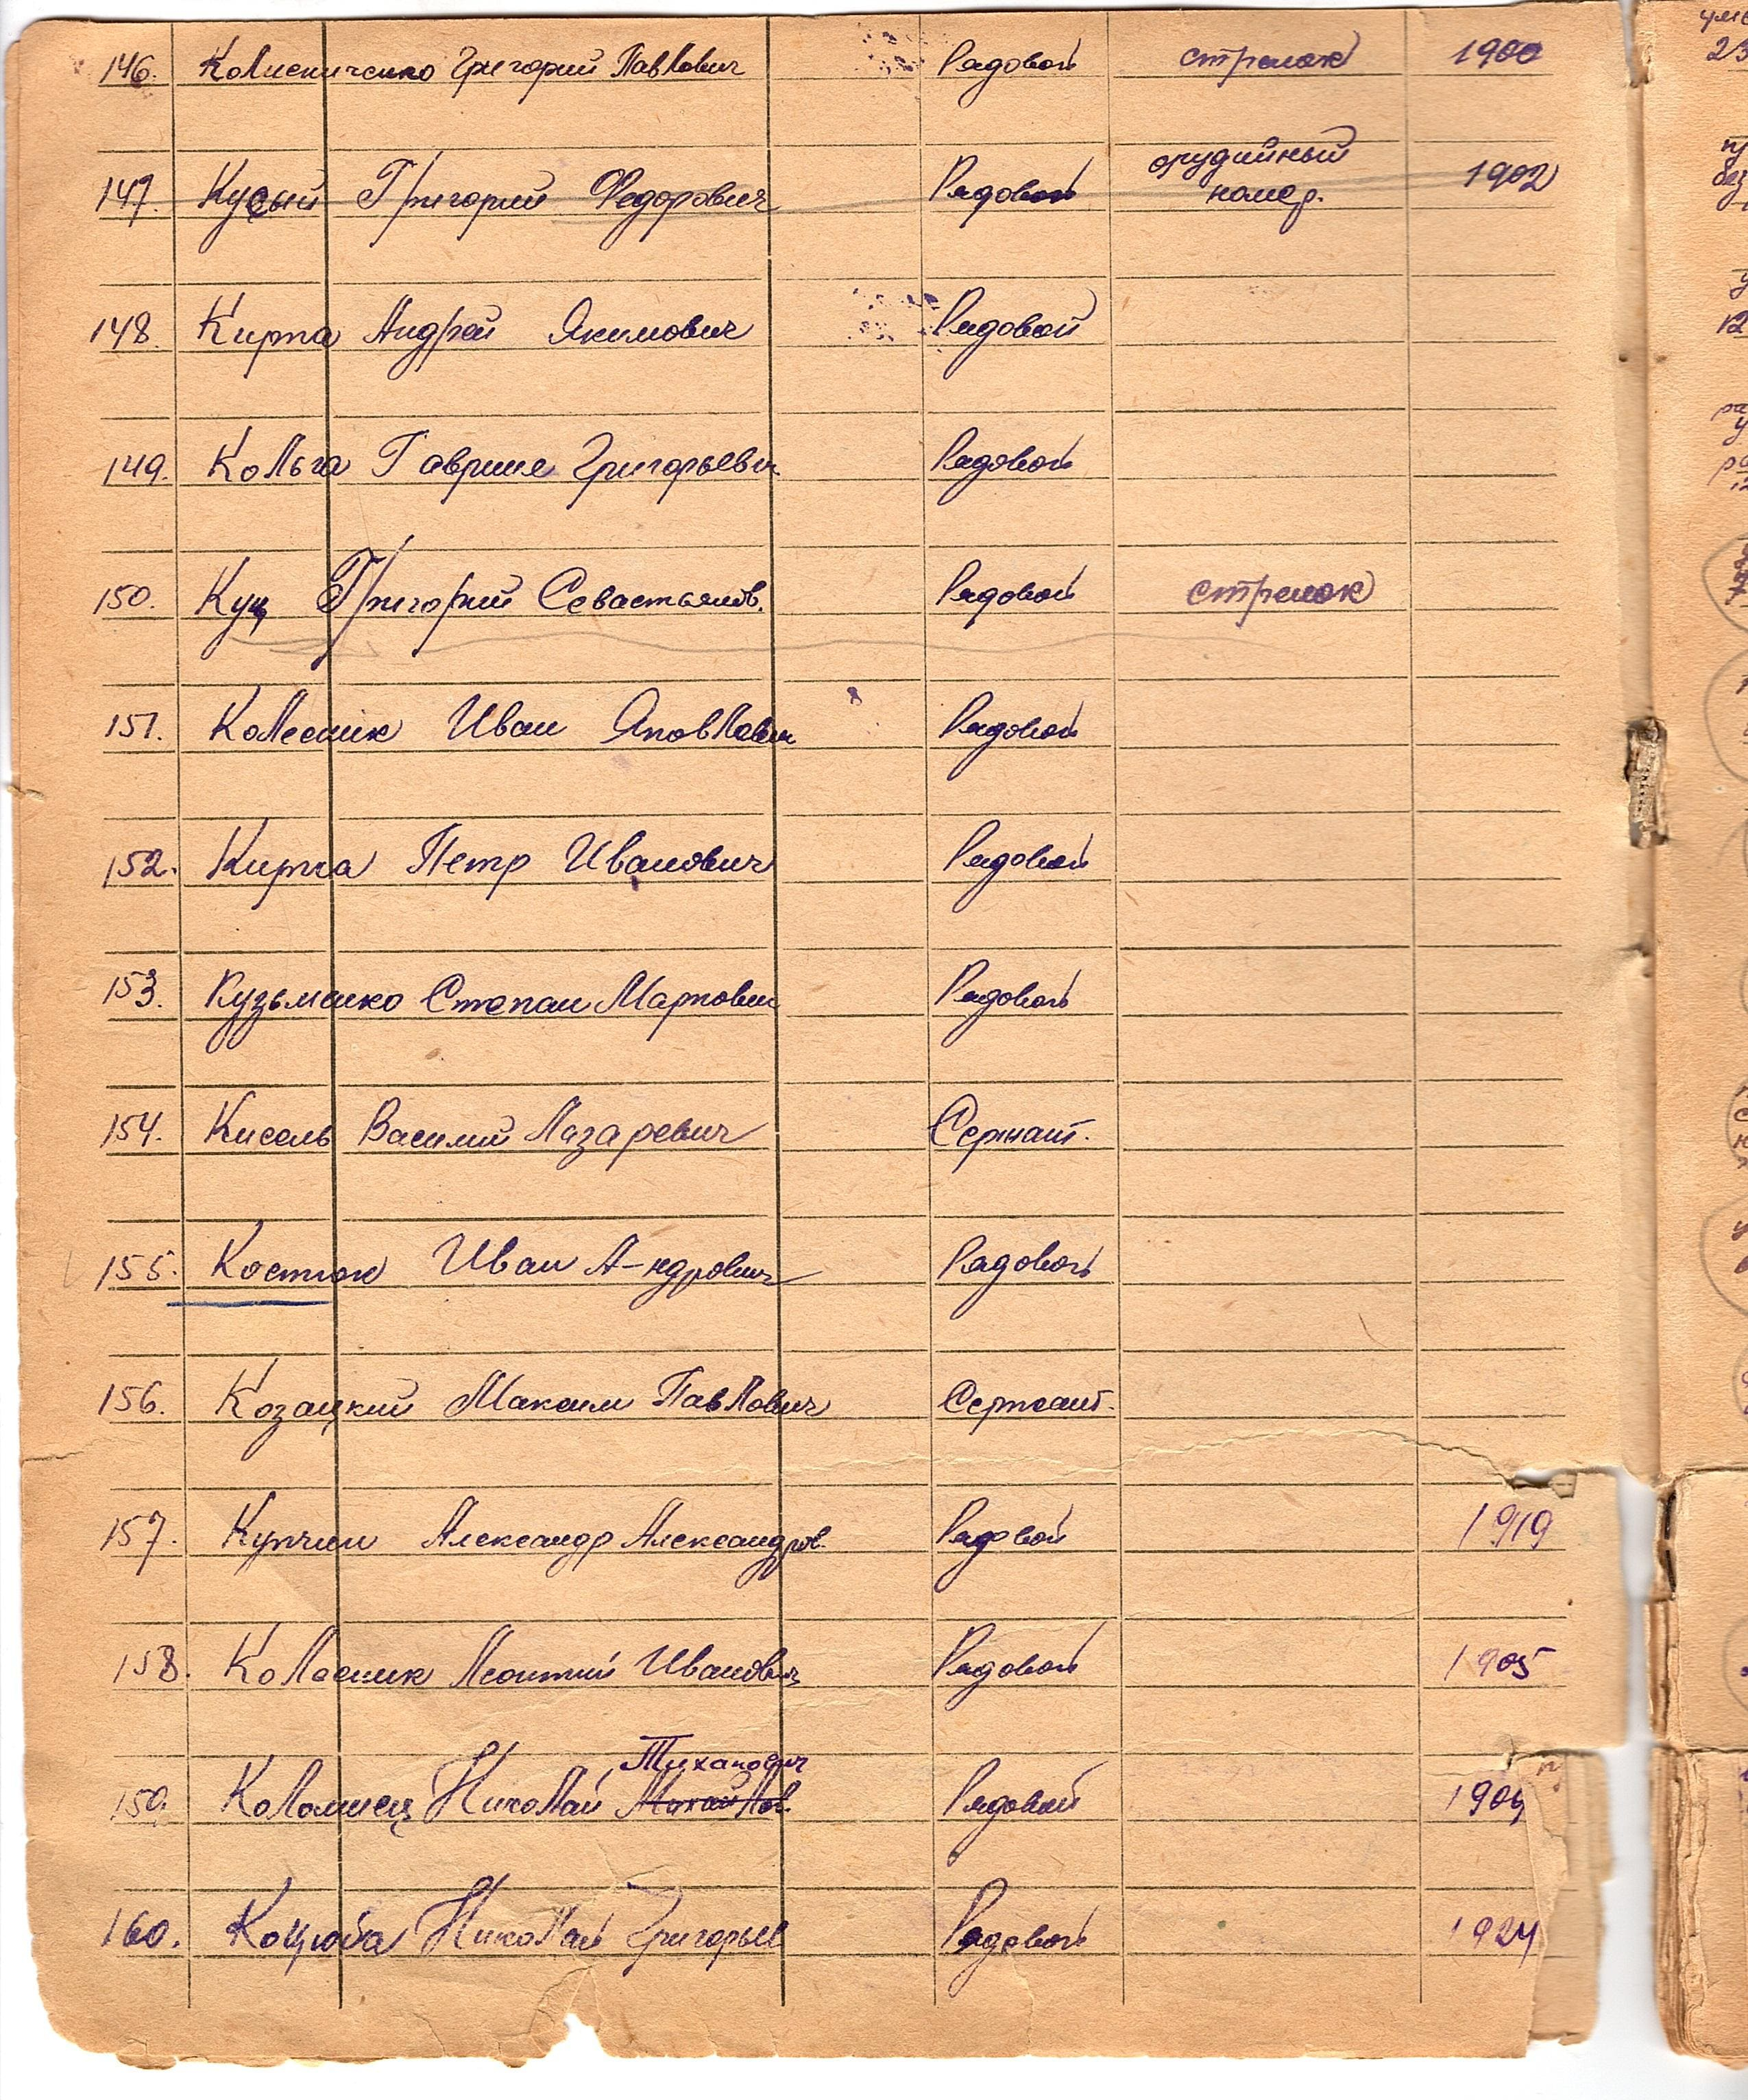 146. Колисниченко Григорий Павлович Рядовой стрелок 1900
орудийный
147. Кусый Григорий Федорович Рядовой номер. 1902
148. Кирпа Андрей Якимович Рядовой
149. Кольга Гавриил Григорьевич Рядовой
150. Куц Григорий Севастьянов. Рядовой стрелок
151. Колесник Иван Яковлевич Рядовой
152. Кирпа Петр Иванович Рядовой
153. Кузьменко Степан Маркович Рядовой
154. Кисель Василий Лазаревич Сержант.
155. Костюк Иван А-ндрович Рядовой
156. Козацкий Максим Павлович Сержант.
157. Купчин Александр Александров. Рядовой 1919
158. Колесник Леонтий Иванович Рядовой 1905
Тиханович
159. Коломиец Николай Михайлов. Рядовой 1904
160. Коцюба Николай Григорьев Рядовой 1924